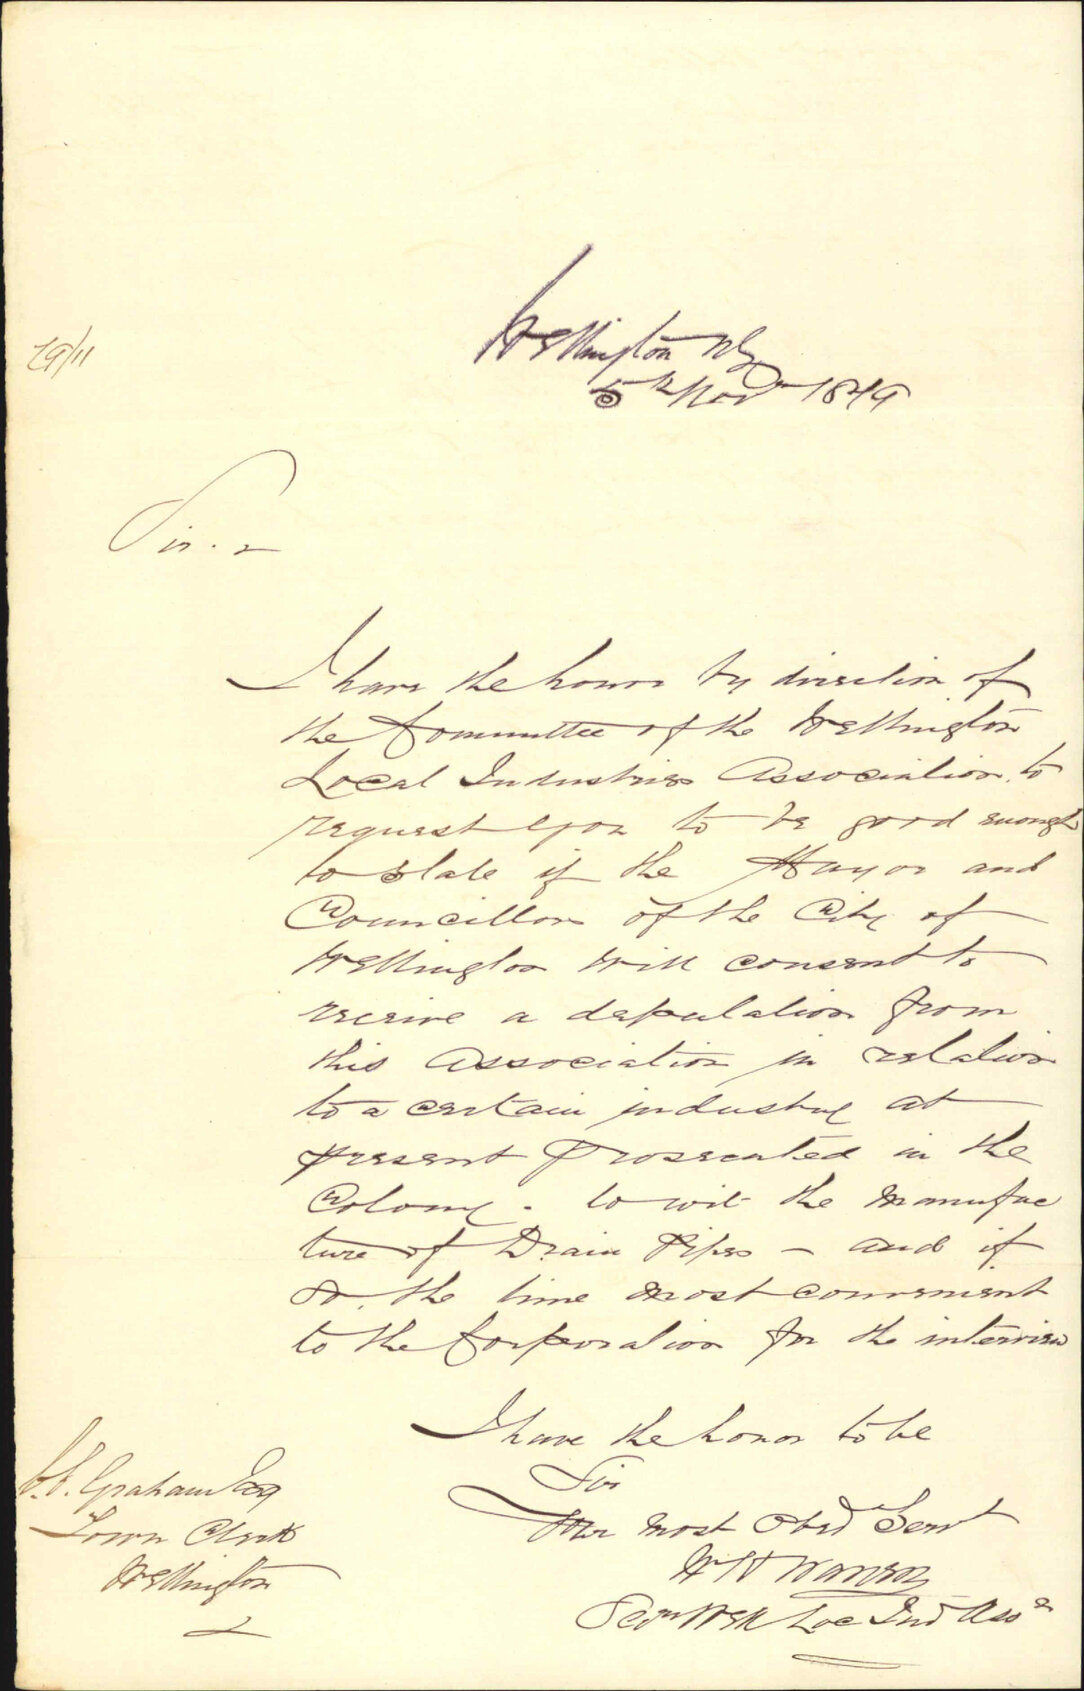 Wellington NZ
5th Novr 1879
79/11
Sir. -
I have the honor by direction of
the Committee of the Wellington
Local Industries Association to
request you to be good enough
to state if the Mayor and
Councillors of the City of
Wellington will consent to
receive a deputation from
this Association in relation
to a certain industry at
present prosecuted in the
Colony - to wit the manufac
ture of Drain Pipes - and if
so, the time most convenient
to the Corporation for the interview
I have the honor to be
Sir
Your most Obed Servt
W H
Secy Well Loc Ind Assn
Graham Esq
Town Clerk
Wellington